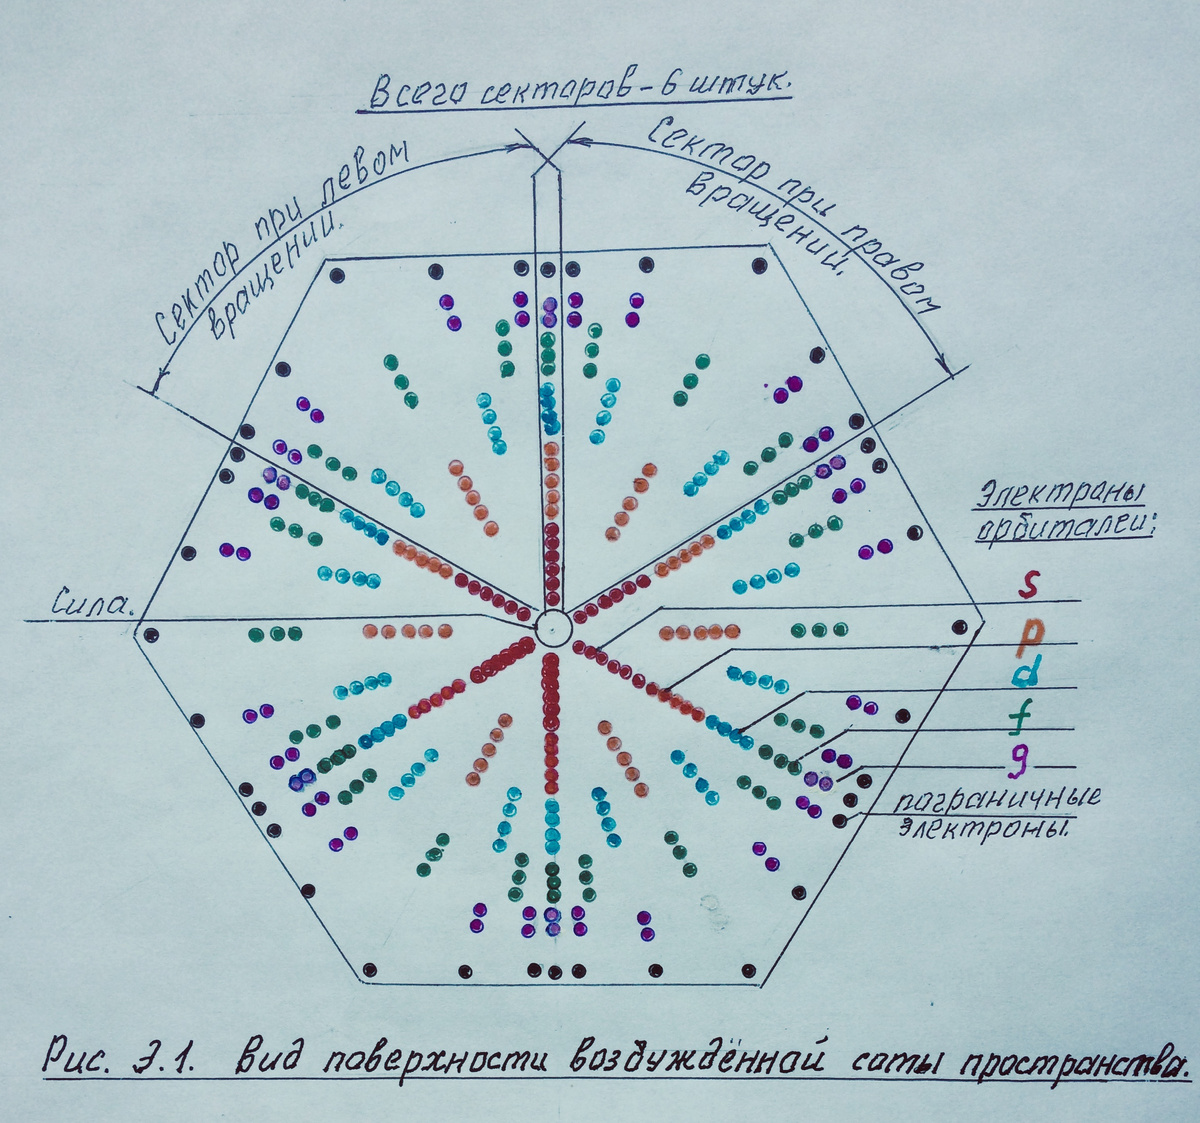 Всего секторов - 6 штук.
Сектор при левом
вращении.
Сектор при правом
вращении.
Электроны
орбиталей:
Сила.
s
p
d
f
g
пограничные
электроны.
Рис. Э.1. Вид поверхности возбуждённой соты пространства.